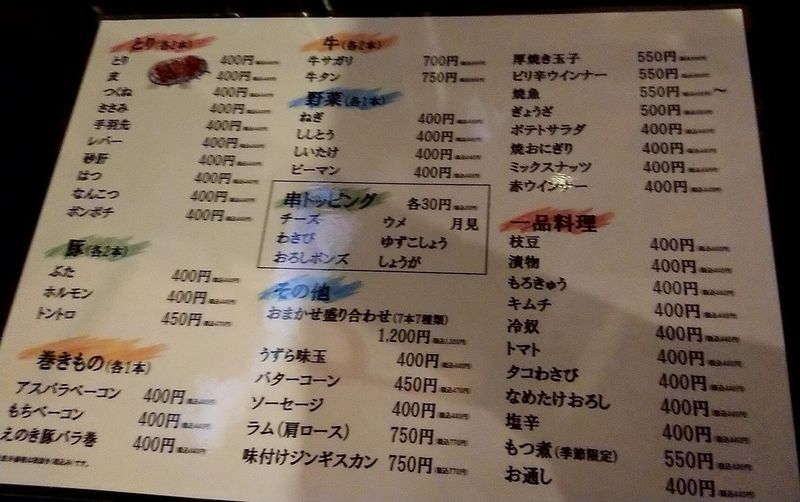 とり(各2本)
とり 400円
皮 400円
つくね 400円
ささみ 400円
手羽先 400円
レバー 400円
砂肝 400円
はつ 400円
なんこつ 400円
ボンボチ 400円
豚(各2本)
ぶた 400円
ホルモン 400円
トントロ 450円
巻きもの(各1本)
アスパラベーコン 400円
もちベーコン 400円
えのき豚バラ巻 400円
牛(各2本)
牛サガリ 700円
牛タン 750円
野菜
ねぎ 400円
ししとう 400円
しいたけ 400円
ピーマン 400円
串トッピング 各30円
チーズ ウメ 月見
わさび ゆずこしょう
おろしポンズ しょうが
その他
おまかせ盛り合わせ(7本7種類)
1,200円
うずら味玉 400円
バターコーン 450円
ソーセージ 400円
ラム(肩ロース) 750円
味付けジンギスカン 750円
厚焼き玉子 550円
ピリ辛ウインナー 550円
焼魚 550円 〜
ぎょうざ 500円
ポテトサラダ 400円
焼おにぎり 400円
ミックスナッツ 400円
赤ウインナー 400円
一品料理
枝豆 400円
漬物 400円
もろきゅう 400円
キムチ 400円
冷奴 400円
トマト 400円
タコわさび 400円
なめたけおろし 400円
塩辛 400円
もつ煮(季節限定) 550円
お通し 400円